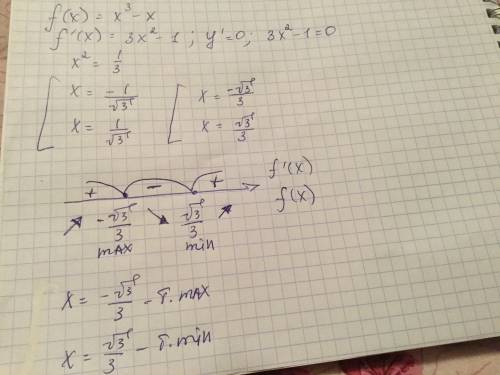 f(x) = x³ - x
f'(x) = 3x² - 1 ; y' = 0 ; 3x² - 1 = 0
x² = 1/3
[ x = -1/√3 [ x = -√3/3
x = 1/√3 x = √3/3
+ - + f'(x)
↗ -√3/3 ↘ √3/3 ↗ f(x)
max min
x = -√3/3 - т. max
x = √3/3 - т. min